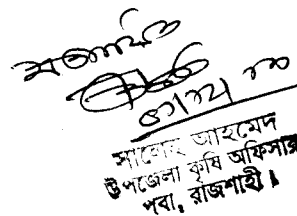 সত্যায়িত
সালেহ আহমেদ
উপজেলা কৃষি অফিসার
পবা, রাজশাহী।